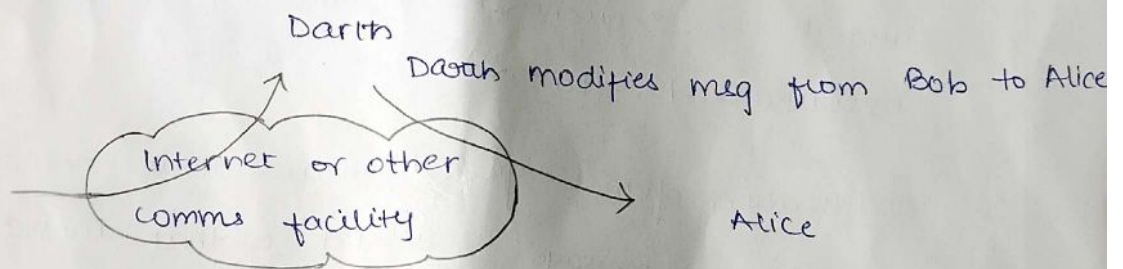 Darth
Darah modifies msg from Bob to Alice
Internet or other
comms facility
Alice